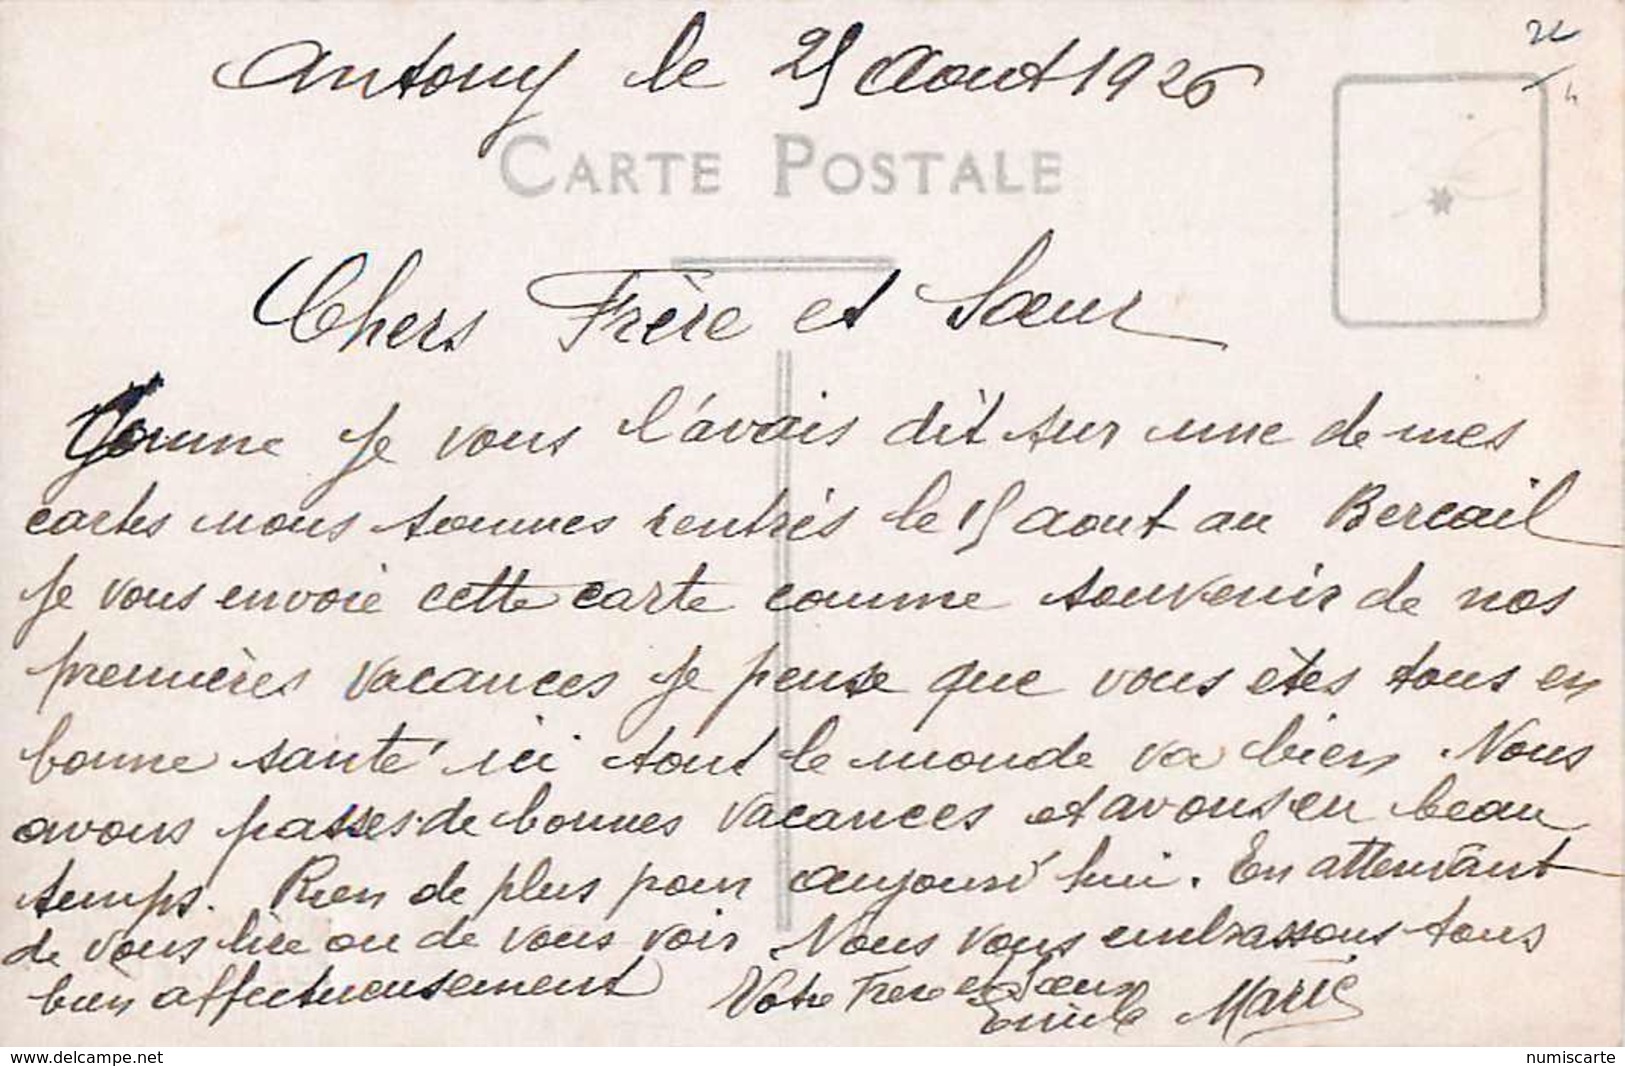 Antony le 25 Aout 1926
CARTE POSTALE
Chers Frère et Sœur
Comme je vous l'avais dit sur une de mes
cartes nous sommes rentrés le 15 aout au Bercail
je vous envoie cette carte comme souvenir de nos
premières vacances je pense que vous êtes tous en
bonne santé ici tout le monde va bien. Nous
avons passés de bonnes vacances et avons eu beau
temps. Rien de plus pour aujourd'hui. En attendant
de vous lire ou de vous voir Nous vous embrassons tous
bien affectueusement Votre Frère et Sœur
Emile Marie
delcampe.net
numiscarte